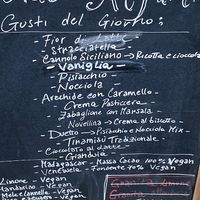 Gusti del Giorno:
- Fior di Latte -
- Stracciatella -
- Cannolo Siciliano → Ricotta e cioccola
- Vaniglia -
- Pistacchio -
- Nocciola -
- Arachide con Caramello -
- Crema Pasticcera -
- Zabaglione con Marsala -
- Novellina → Crema al biscotto -
- Duetto → Pistacchio e Nocciola Mix -
- Tiramisù Tradizionale -
- Cioccolato al Latte -
- Gianduia -
- Madagascar → Massa Cacao 100% Vegan
- Venezuela → Fondente 70% Vegan
Limone - Vegan
Mandarino - Vegan
Melograno - Vegan